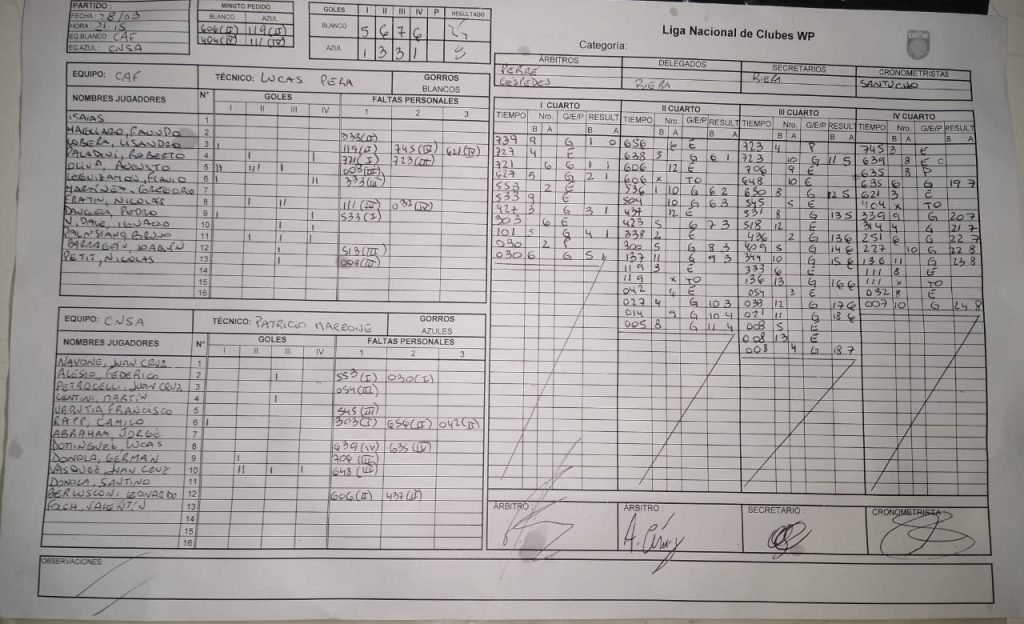 PARTIDO :
FECHA: 28/03
HORA: 21:15
EQ.BLANCO: CAF
EQ.AZUL: CNSA
MINUTO PEDIDO
BLANCO AZUL
606(II) 119(II)
404(IV) 111(IV)
GOLES I II III IV P RESULTADO
BLANCO 5 6 7 6
AZUL 1 3 3 1
Liga Nacional de Clubes WP
Categoria:
ÁRBITROS DELEGADOS SECRETARIOS CRONOMETRISTAS
CESPEDES RIERA RIERA SANTUCHO
EQUIPO: CAF TÉCNICO: LUCAS PERA GORROS BLANCOS
NOMBRES JUGADORES N° GOLES FALTAS PERSONALES
I II III IV 1 2 3
ISAIAS 1
2 333(I)
LOBERA, LISANDRO 3 119(II) 745(IV) 621(IV)
PALADINI, ROBERTO 4 721(I) 723(III)
OLIVA, AUGUSTO 5 008(III)
LEGUIZAMON, FLAVIO 6 333(III)
MARTINEZ, GREGORIO 7
ERATIN, NICOLAS 8 111(IV) 032(IV)
PEDRO 9 533(I)
IGNACIO 10
BRUNO 11
BARRAGAN, JOAQUIN 12 513(III)
PETIT, NICOLAS 13 008(III)
14
15
16
EQUIPO: CNSA TÉCNICO: PATRICIO MARRONE GORROS AZULES
NOMBRES JUGADORES N° GOLES FALTAS PERSONALES
I II III IV 1 2 3
NAVONE, JUAN CRUZ 1
ALESIO, FEDERICO 2 553(I) 030(I)
PETROCELLI, JUAN CRUZ 3 054(III)
LENTINI, MARTÍN 4
URRUTIA, FRANCISCO 5 545(III)
RAPP, CAMILO 6 303(I) 656(II) 042(II)
ABRAHAM, JORGE 7
DOMINGUEZ, LUCAS 8 639(IV) 635(IV)
DONOLA, GERMÁN 9 706(III)
VASQUEZ, JUAN CRUZ 10 648(III)
DONOLA, SANTINO 11
BERLUSCONI LEONARDO 12 606(II) 437(II)
FOLCH, VALENTÍN 13
14
15
16
I CUARTO II CUARTO III CUARTO IV CUARTO
TIEMPO Nro. G/E/P RESULT TIEMPO Nro. G/E/P RESULT TIEMPO Nro. G/E/P RESULT TIEMPO Nro. G/E/P RESULT
B A B A B A B A B A B A B A B A
739 9 G 1 0 656 6 E 723 4 P 745 3 E
727 4 E 638 5 G 6 1 723 10 G 11 5 639 8 E C
721 6 G 1 1 606 12 E 706 9 E 635 8 P
627 5 G 2 1 606 x TO 648 10 E 635 6 G 19 7
553 2 E 536 1 10 G 6 2 630 8 G 12 5 621 3 E
533 9 E 504 10 G 6 3 545 5 E 404 x TO
427 3 G 3 1 437 12 E 531 8 G 13 5 339 9 G 20 7
303 6 E 423 5 G 7 3 518 12 E 314 4 G 21 7
101 5 G 4 1 338 2 E 436 2 G 13 6 251 6 G 22 7
030 2 P 300 5 G 8 3 409 5 G 14 6 227 10 G 22 8
030 6 G 5 1 137 11 G 9 3 344 10 G 15 6 136 11 G 23 8
119 3 E 333 6 E 111 8 E
119 x TO 136 13 G 16 6 111 x TO
042 6 E 054 3 E 032 8 E
027 4 G 10 3 033 12 G 17 6 007 10 G 24 8
014 9 G 10 4 021 11 G 18 6
005 8 G 11 4 008 5 E
008 13 E
008 4 G 18 7
ARBITRO : ÁRBITRO : SECRETARIO : CRONOMETRISTA
OBSERVACIONES: